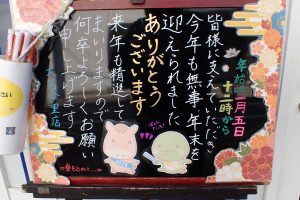 年始は一月五日
十二時から
皆様に支えていただき
今年も無事、年末を
迎えられました
ありがとう
ございます
来年も精進して
まいりますので
何卒よろしくお願い
申し上げます